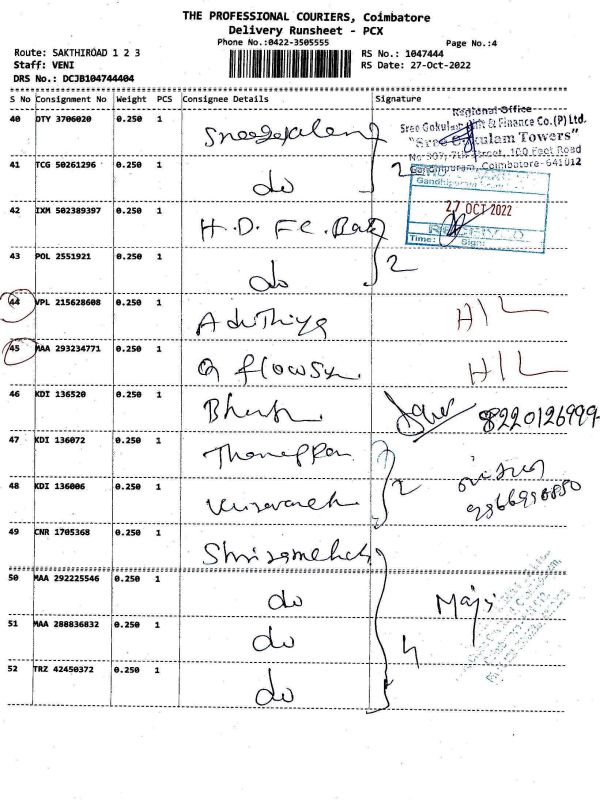 THE PROFESSIONAL COURIERS, Coimbatore
Delivery Runsheet - PCX
Phone No.:0422-3505555
Page No.:4
Route: SAKTHIROAD 1 2 3
RS No.: 1047444
Staff: VENI
RS Date: 27-Oct-2022
DRS No.: DCJB104744404
S No Consignment No Weight PCS Consignee Details Signature
Regional Office
40 DTY 3706020 0.250 1
Sree Gokulam Chit & Finance Co.(P) Ltd.
"Sree Gokulam Towers"
No 507, 7th Street, 100 Feet Road
Gandhipuram, Coimbatore-641012
41 TCG 50261296 0.250 1 do 2
27 OCT 2022
42 IXM 502389397 0.250 1 H.D.F.C. Bank
RECEIVED
Time: Sign:
43 POL 2551921 0.250 1 do 2
44 VPL 215628608 0.250 1 Adithiya H/L
45 MAA 293234771 0.250 1 Q flowsys H/L
46 KDI 136520 0.250 1 8220126999
47 KDI 136072 0.250 1 Thaneppan
48 KDI 136006 0.250 1 2
49 CNR 1705368 0.250 1
50 MAA 292225546 0.250 1 do
51 MAA 288836832 0.250 1 do 4
52 TRZ 42450372 0.250 1 do